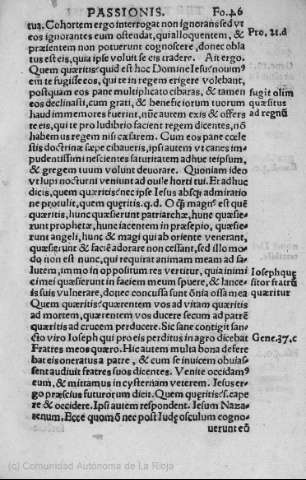 PASSIONIS. Fo.46
tua. Cohortem ergo interrogat non ignorans sed vt
eos ignorantes eum ostendat, qui alloquentem, &
præsentem non potuerunt cognoscere, donec obla
tus est eis, quia ipse voluit se eis tradere. Ait ergo.
Quem quæritis: quid est hoc Domine Iesu: nouum
em te fugisse eos, qui te in regem erigere volebant,
postquam eos pane multiplicato cibaras, & tamen
eos declinasti, cum grati, & beneficiorum tuorum
haud immemores fuerint, núc autem exis & offers
te eis, qui te pro ludibrio facient regem dicentes, nō
habemus regem nisi cæsarem. Cum eos pane cœle
stis doctrinæ sæpe cibaueris, ipsi autem vt canes im
pudentissimi nescientes saturitatem adhuc teipsum,
& gregem tuum volunt deuorare. Quoniam ideo
vt lupi nocturni veniunt ad ouile horti tui. Et adhuc
dicis, quem quæritis: nec ipse Iesus absq; admiratio
ne protulit, quem quęritis. q.d. O q̃ magnꝰ est quē
quæritis, hunc quæsierunt patriarchæ, hunc quæsie
runt prophetæ, hunc iacentem in præsepio, quæsie
runt angeli, hunc & magi qui ab oriente venerant,
quæsierunt & facè adorare non cessant, sed illo mo
do non est nunc, qui requirat animam meam ad sa
lutem, immo in oppositum res vertitur, quia inimi
ci mei quæsierunt in faciem meam spuere, & lance
is suis vulnerare, donec concussa sunt ōnia ossa mea
Quem quæritis: quærentem vos ad vitam quæritis
ad mortem, quærentem vos ducere secum ad patrē
quæritis ad crucem perducere. Sic sane contigit san
cto viro Ioseph qui pro eis perditus in agro dicebat
Fratres meos quæro. Hic autem multa bona defere
bat eis oneratus a patre, & cum se inuicem obuias-
sent audiuit fratres suos dicentes. Venite occidamꝰ
eum, & mittamus in cysternam veterem. Iesus er-
go præscius futurorum dicit. Quem quęritis: sᵗ. cape
re & occidere. Ipsi autem respondent. Iesum Naza
renum. Ecce quomō nec post Iudę osculum cog
uerunt eū
Pro, 21.d
fugit olim
quæsitus
ad regnū
Iosephque
sitor fratrū
quæritur
Gene. 37, c
(c) Comunidad Autónoma de La Rioja